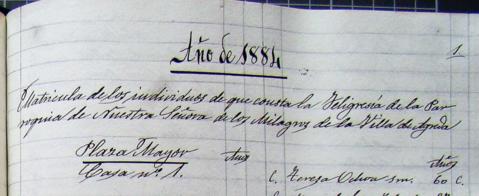 Año de 1884
1.
Matricula de los individuos de que consta la Feligresía de la Par
roquia de Nuestra Señora de los Milagros de la Villa de Agreda
Plaza Mayor Años Años
Casa nº 1. C. Teresa sm. 60 C.